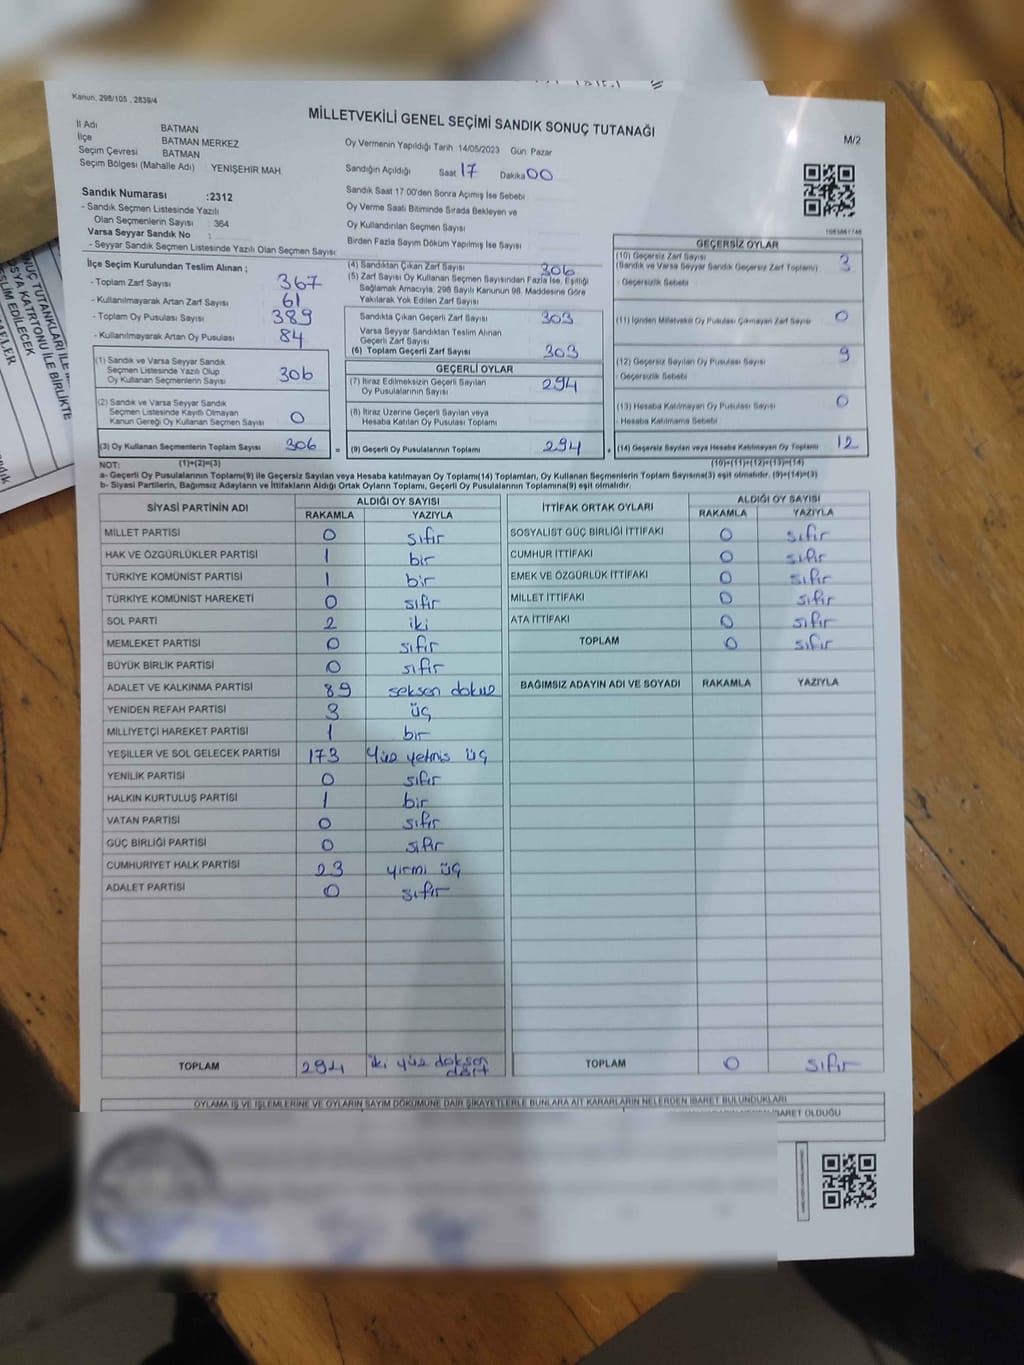 Kanun, 298/105 , 2839/4
MİLLETVEKİLİ GENEL SEÇİMİ SANDIK SONUÇ TUTANAĞI
M/2
İl Adı BATMAN
İlçe BATMAN MERKEZ
Seçim Çevresi BATMAN
Seçim Bölgesi (Mahalle Adı) YENİŞEHİR MAH
Oy Vermenin Yapıldığı Tarih 14/05/2023 Gün: Pazar
Sandığın Açıldığı Saat 17 Dakika 00
Sandık Saat 17 00'den Sonra Açımış İse Sebebi
Oy Verme Saati Bitiminde Sırada Bekleyen ve
Oy Kullandırılan Seçmen Sayısı
Birden Fazla Sayım Döküm Yapılmış İse Sayısı
Sandık Numarası :2312
- Sandık Seçmen Listesinde Yazılı
Olan Seçmenlerin Sayısı : 364
Varsa Seyyar Sandık No :
- Seyyar Sandık Seçmen Listesinde Yazılı Olan Seçmen Sayısı
İlçe Seçim Kurulundan Teslim Alınan ;
- Toplam Zarf Sayısı 367
- Kullanılmayarak Artan Zarf Sayısı 61
- Toplam Oy Pusulası Sayısı 389
- Kullanılmayarak Artan Oy Pusulası 84
(1) Sandık ve Varsa Seyyar Sandık
Seçmen Listesinde Yazılı Olup
Oy Kullanan Seçmenlerin Sayısı 306
(2) Sandık ve Varsa Seyyar Sandık
Seçmen Listesinde Kayıtlı Olmayan
Kanun Gereği Oy Kullanan Seçmen Sayısı 0
(3) Oy Kullanan Seçmenlerin Toplam Sayısı 306
(1)+(2)=(3)
(4) Sandıktan Çıkan Zarf Sayısı 306
(5) Zarf Sayısı Oy Kullanan Seçmen Sayısından Fazla İse, Eşitliği
Sağlamak Amacıyla, 298 Sayılı Kanunun 98. Maddesine Göre
Yakılarak Yok Edilen Zarf Sayısı
Sandıkta Çıkan Geçerli Zarf Sayısı 303
Varsa Seyyar Sandıktan Teslim Alınan
Geçerli Zarf Sayısı
(6) Toplam Geçerli Zarf Sayısı 303
GEÇERLİ OYLAR
(7) İtiraz Edilmeksizin Geçerli Sayılan
Oy Pusulalarının Sayısı 294
(8) İtiraz Üzerine Geçerli Sayılan veya
Hesaba Katılan Oy Pusulası Toplamı
= (9) Geçerli Oy Pusulalarının Toplamı 294
GEÇERSİZ OYLAR
(10) Geçersiz Zarf Sayısı
(Sandık ve Varsa Seyyar Sandık Geçersiz Zarf Toplamı) 3
- Geçersizlik Sebebi
(11) İçinden Milletvekili Oy Pusulası Çıkmayan Zarf Sayısı 0
(12) Geçersiz Sayılan Oy Pusulası Sayısı 9
- Geçersizlik Sebebi
(13) Hesaba Katılmayan Oy Pusulası Sayısı 0
- Hesaba Katılmama Sebebi
+ (14) Geçersiz Sayılan veya Hesaba Katılmayan Oy Toplamı 12
(10)+(11)+(12)+(13)=(14)
NOT:
a- Geçerli Oy Pusulalarının Toplamı(9) ile Geçersiz Sayılan veya Hesaba katılmayan Oy Toplamı(14) Toplamları, Oy Kullanan Seçmenlerin Toplam Sayısına(3) eşit olmalıdır. (9)+(14)=(3)
b- Siyasi Partilerin, Bağımsız Adayların ve İttifakların Aldığı Ortak Oyların Toplamı, Geçerli Oy Pusulalarının Toplamına(9) eşit olmalıdır.
SİYASİ PARTİNİN ADI ALDIĞI OY SAYISI
RAKAMLA YAZIYLA
MİLLET PARTİSİ 0 sıfır
HAK VE ÖZGÜRLÜKLER PARTİSİ 1 bir
TÜRKİYE KOMÜNİST PARTİSİ 1 bir
TÜRKİYE KOMÜNİST HAREKETİ 0 sıfır
SOL PARTİ 2 iki
MEMLEKET PARTİSİ 0 sıfır
BÜYÜK BİRLİK PARTİSİ 0 sıfır
ADALET VE KALKINMA PARTİSİ 89 seksen dokuz
YENİDEN REFAH PARTİSİ 3 üç
MİLLİYETÇİ HAREKET PARTİSİ 1 bir
YEŞİLLER VE SOL GELECEK PARTİSİ 173 Yüz yetmis üç
YENİLİK PARTİSİ 0 sıfır
HALKIN KURTULUŞ PARTİSİ 1 bir
VATAN PARTİSİ 0 sıfır
GÜÇ BİRLİĞİ PARTİSİ 0 sıfır
CUMHURİYET HALK PARTİSİ 23 yirmi üç
ADALET PARTİSİ 0 sıfır
TOPLAM 294 iki yüz doksan dört
İTTİFAK ORTAK OYLARI ALDIĞI OY SAYISI
RAKAMLA YAZIYLA
SOSYALİST GÜÇ BİRLİĞİ İTTİFAKI 0 sıfır
CUMHUR İTTİFAKI 0 sıfır
EMEK VE ÖZGÜRLÜK İTTİFAKI 0 sıfır
MİLLET İTTİFAKI 0 sıfır
ATA İTTİFAKI 0 sıfır
TOPLAM 0 sıfır
BAĞIMSIZ ADAYIN ADI VE SOYADI RAKAMLA YAZIYLA
TOPLAM 0 sıfır
OYLAMA İŞ VE İŞLEMLERİNE VE OYLARIN SAYIM DÖKÜMÜNE DAİR ŞİKAYETLERLE BUNLARA AİT KARARLARIN NELERDEN İBARET BULUNDUKLARI
İBARET OLDUĞU